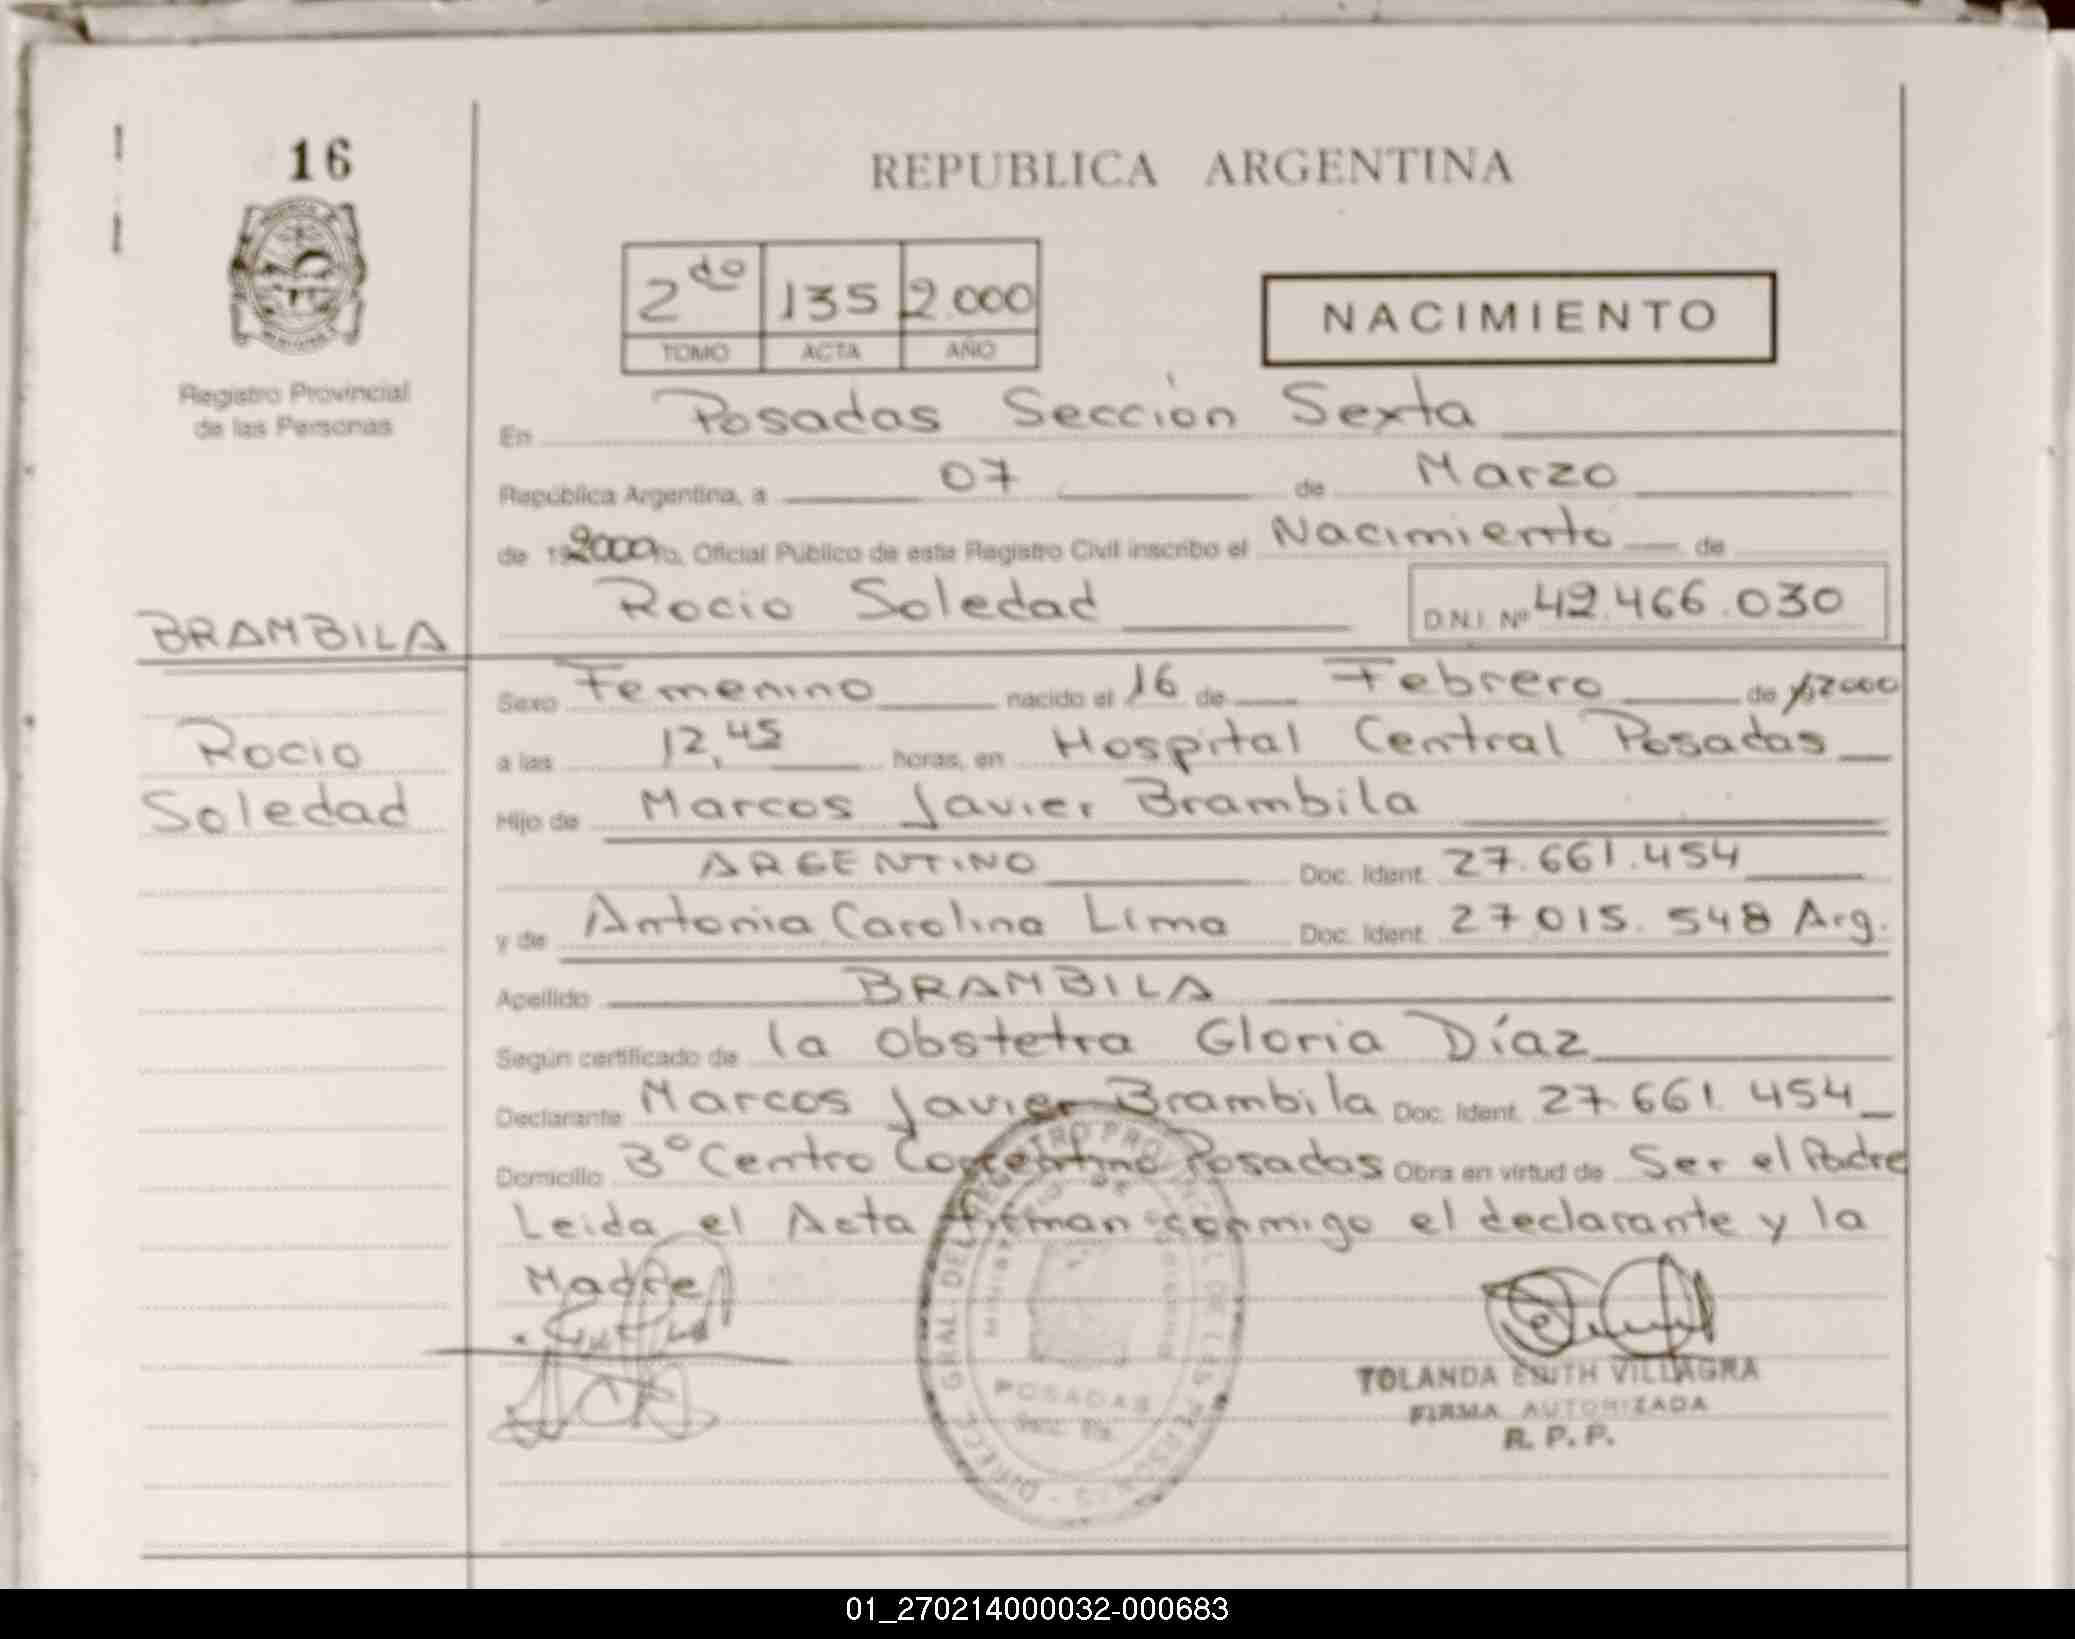 16
REPUBLICA ARGENTINA
2do 135 2.000
TOMO ACTA AÑO
NACIMIENTO
Registro Provincial
de las Personas
En Posadas Sección Sexta
República Argentina, a 07 de Marzo
de 2000 Yo, Oficial Público de este Registro Civil inscribo el Nacimiento de
Rocio Soledad D.N.I. Nº 42.466.030
BRAMBILA
Sexo Femenino nacido el 16 de Febrero de 2000
Rocio
a las 12,45 horas, en Hospital Central Posadas
Soledad
Hijo de Marcos Javier Brambila
ARGENTINO Doc. Ident. 27.661.454
y de Antonia Carolina Lima Doc. Ident. 27015.548 Arg.
Apellido BRAMBILA
Según certificado de la Obstetra Gloria Díaz
Declarante Marcos Javier Brambila Doc. Ident. 27.661.454
Domicilio 3º Centro Posadas Obra en virtud de Ser el Padre
Leida el Acta firman conmigo el declarante y la
Madre
DIRECC. GRAL. DEL REGISTRO PROVINCIAL DE LAS PERSONAS
POSADAS
TOLANDA ENITH VILLAGRA
FIRMA AUTORIZADA
R. P. P.
01_270214000032-000683